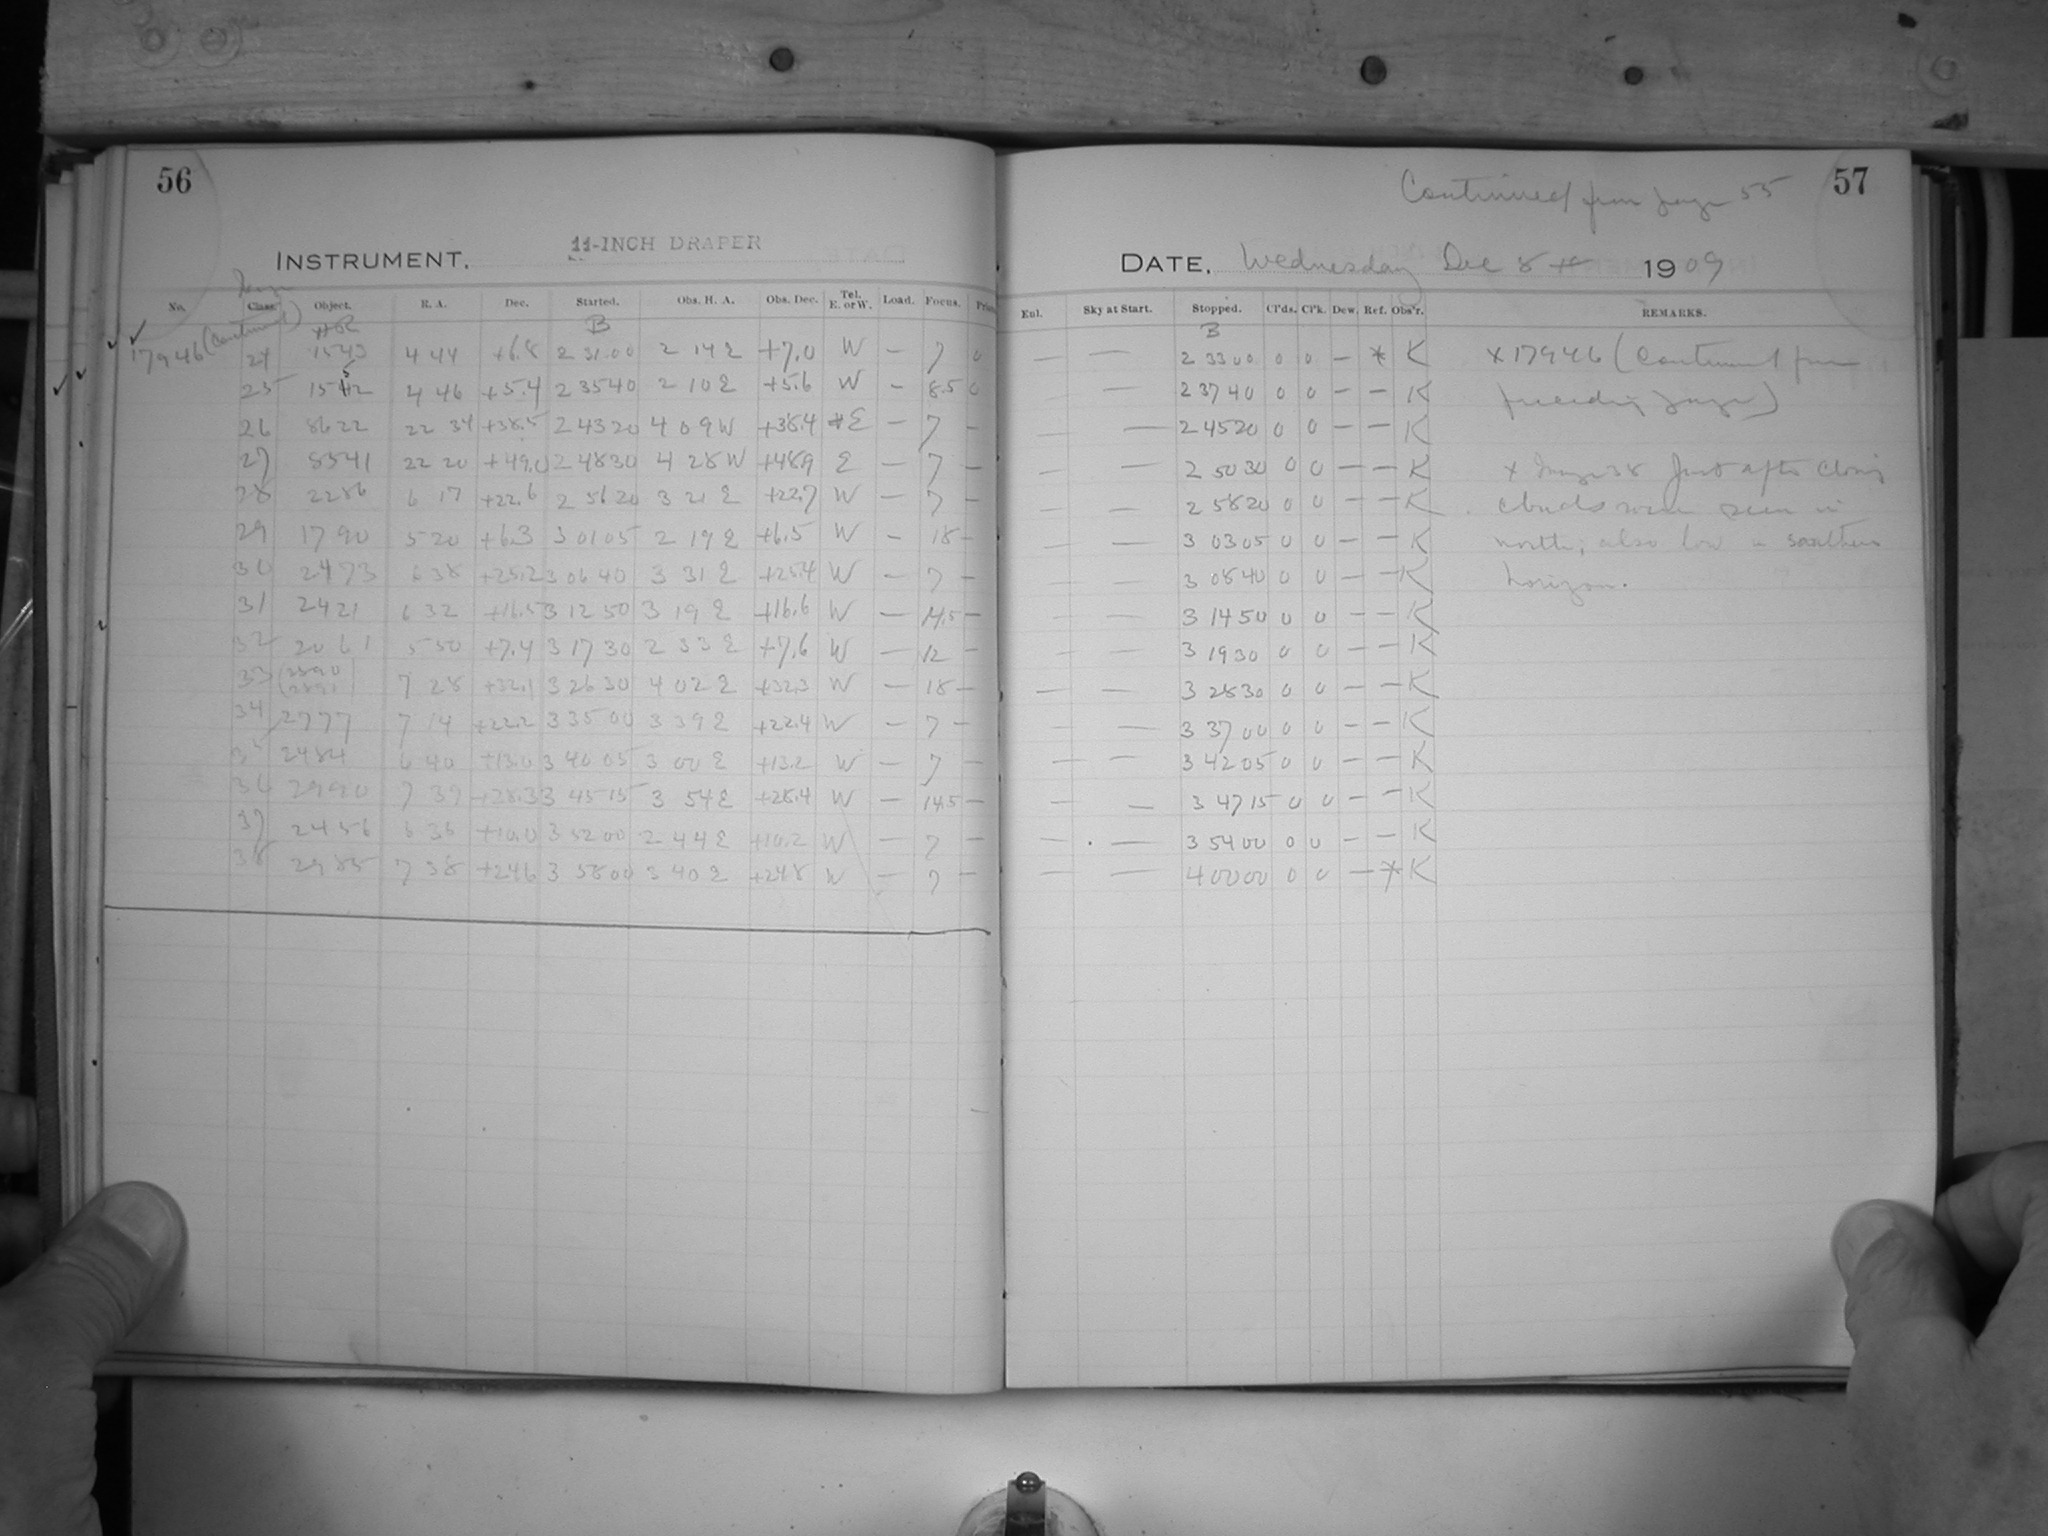 56
11-INCH DRAPER
INSTRUMENT.
No. Class. Object. R. A. Dec. Started. Obs. H. A. Obs. Dec. Tel. E. or W. Load. Focus.
HR B
17946 (Continued) 24 1543 4 44 +6.8 2 31 00 2 14 E +7.0 W — 7 0
25 1552 4 46 +5.4 2 35 40 2 10 E +5.6 W — 8.5 0
26 8622 22 34 +38.5 2 43 20 4 09 W +38.4 *E — 7 —
27 8541 22 20 +49.0 2 48 30 4 28 W +48.9 E — 7 —
28 2286 6 17 +22.6 2 56 20 3 21 E +22.7 W — 7 —
29 1790 5 20 +6.3 3 01 05 2 19 E +6.5 W — 18 —
30 2473 6 38 +25.2 3 06 40 3 31 E +25.4 W — 7 —
31 2421 6 32 +16.5 3 12 50 3 19 E +16.6 W — 14.5 —
32 2061 5 50 +7.4 3 17 30 2 33 E +7.6 W — 12 —
33 (2890 2891) 7 28 +32.1 3 26 30 4 02 E +32.3 W — 18 —
34 2777 7 14 +22.2 3 35 00 3 39 E +22.4 W — 7 —
35 2484 6 40 +13.0 3 40 05 3 00 E +13.2 W — 7 —
36 2990 7 39 +28.3 3 45 15 3 54 E +28.4 W — 14.5 —
37 2456 6 36 +10.0 3 52 00 2 44 E +10.2 W — 7 —
38 2985 7 38 +24.6 3 58 00 3 40 E +24.8 W — 7 —
Continued from page 55 57
DATE. Wednesday Dec 8 1909
Exl. Sky at Start. Stopped. Cl'ds. Cl'k. Dew. Ref. Obs'r. REMARKS.
B
— — 2 33 00 0 0 — * K x 17946 (Continued from
— 2 37 40 0 0 — — K preceding page)
— — 2 45 20 0 0 — — K
— — 2 50 30 0 0 — — K x Image 38 Just after closing
— — 2 58 20 0 0 — — K clouds were seen in
— — 3 03 05 0 0 — — K north, also low in southern
— — 3 08 40 0 0 — — K horizon.
— — 3 14 50 0 0 — — K
— — 3 19 30 0 0 — — K
— — 3 28 30 0 0 — — K
— — 3 37 00 0 0 — — K
— — 3 42 05 0 0 — — K
— — 3 47 15 0 0 — — K
— — 3 54 00 0 0 — — K
— — 4 00 00 0 0 — * K